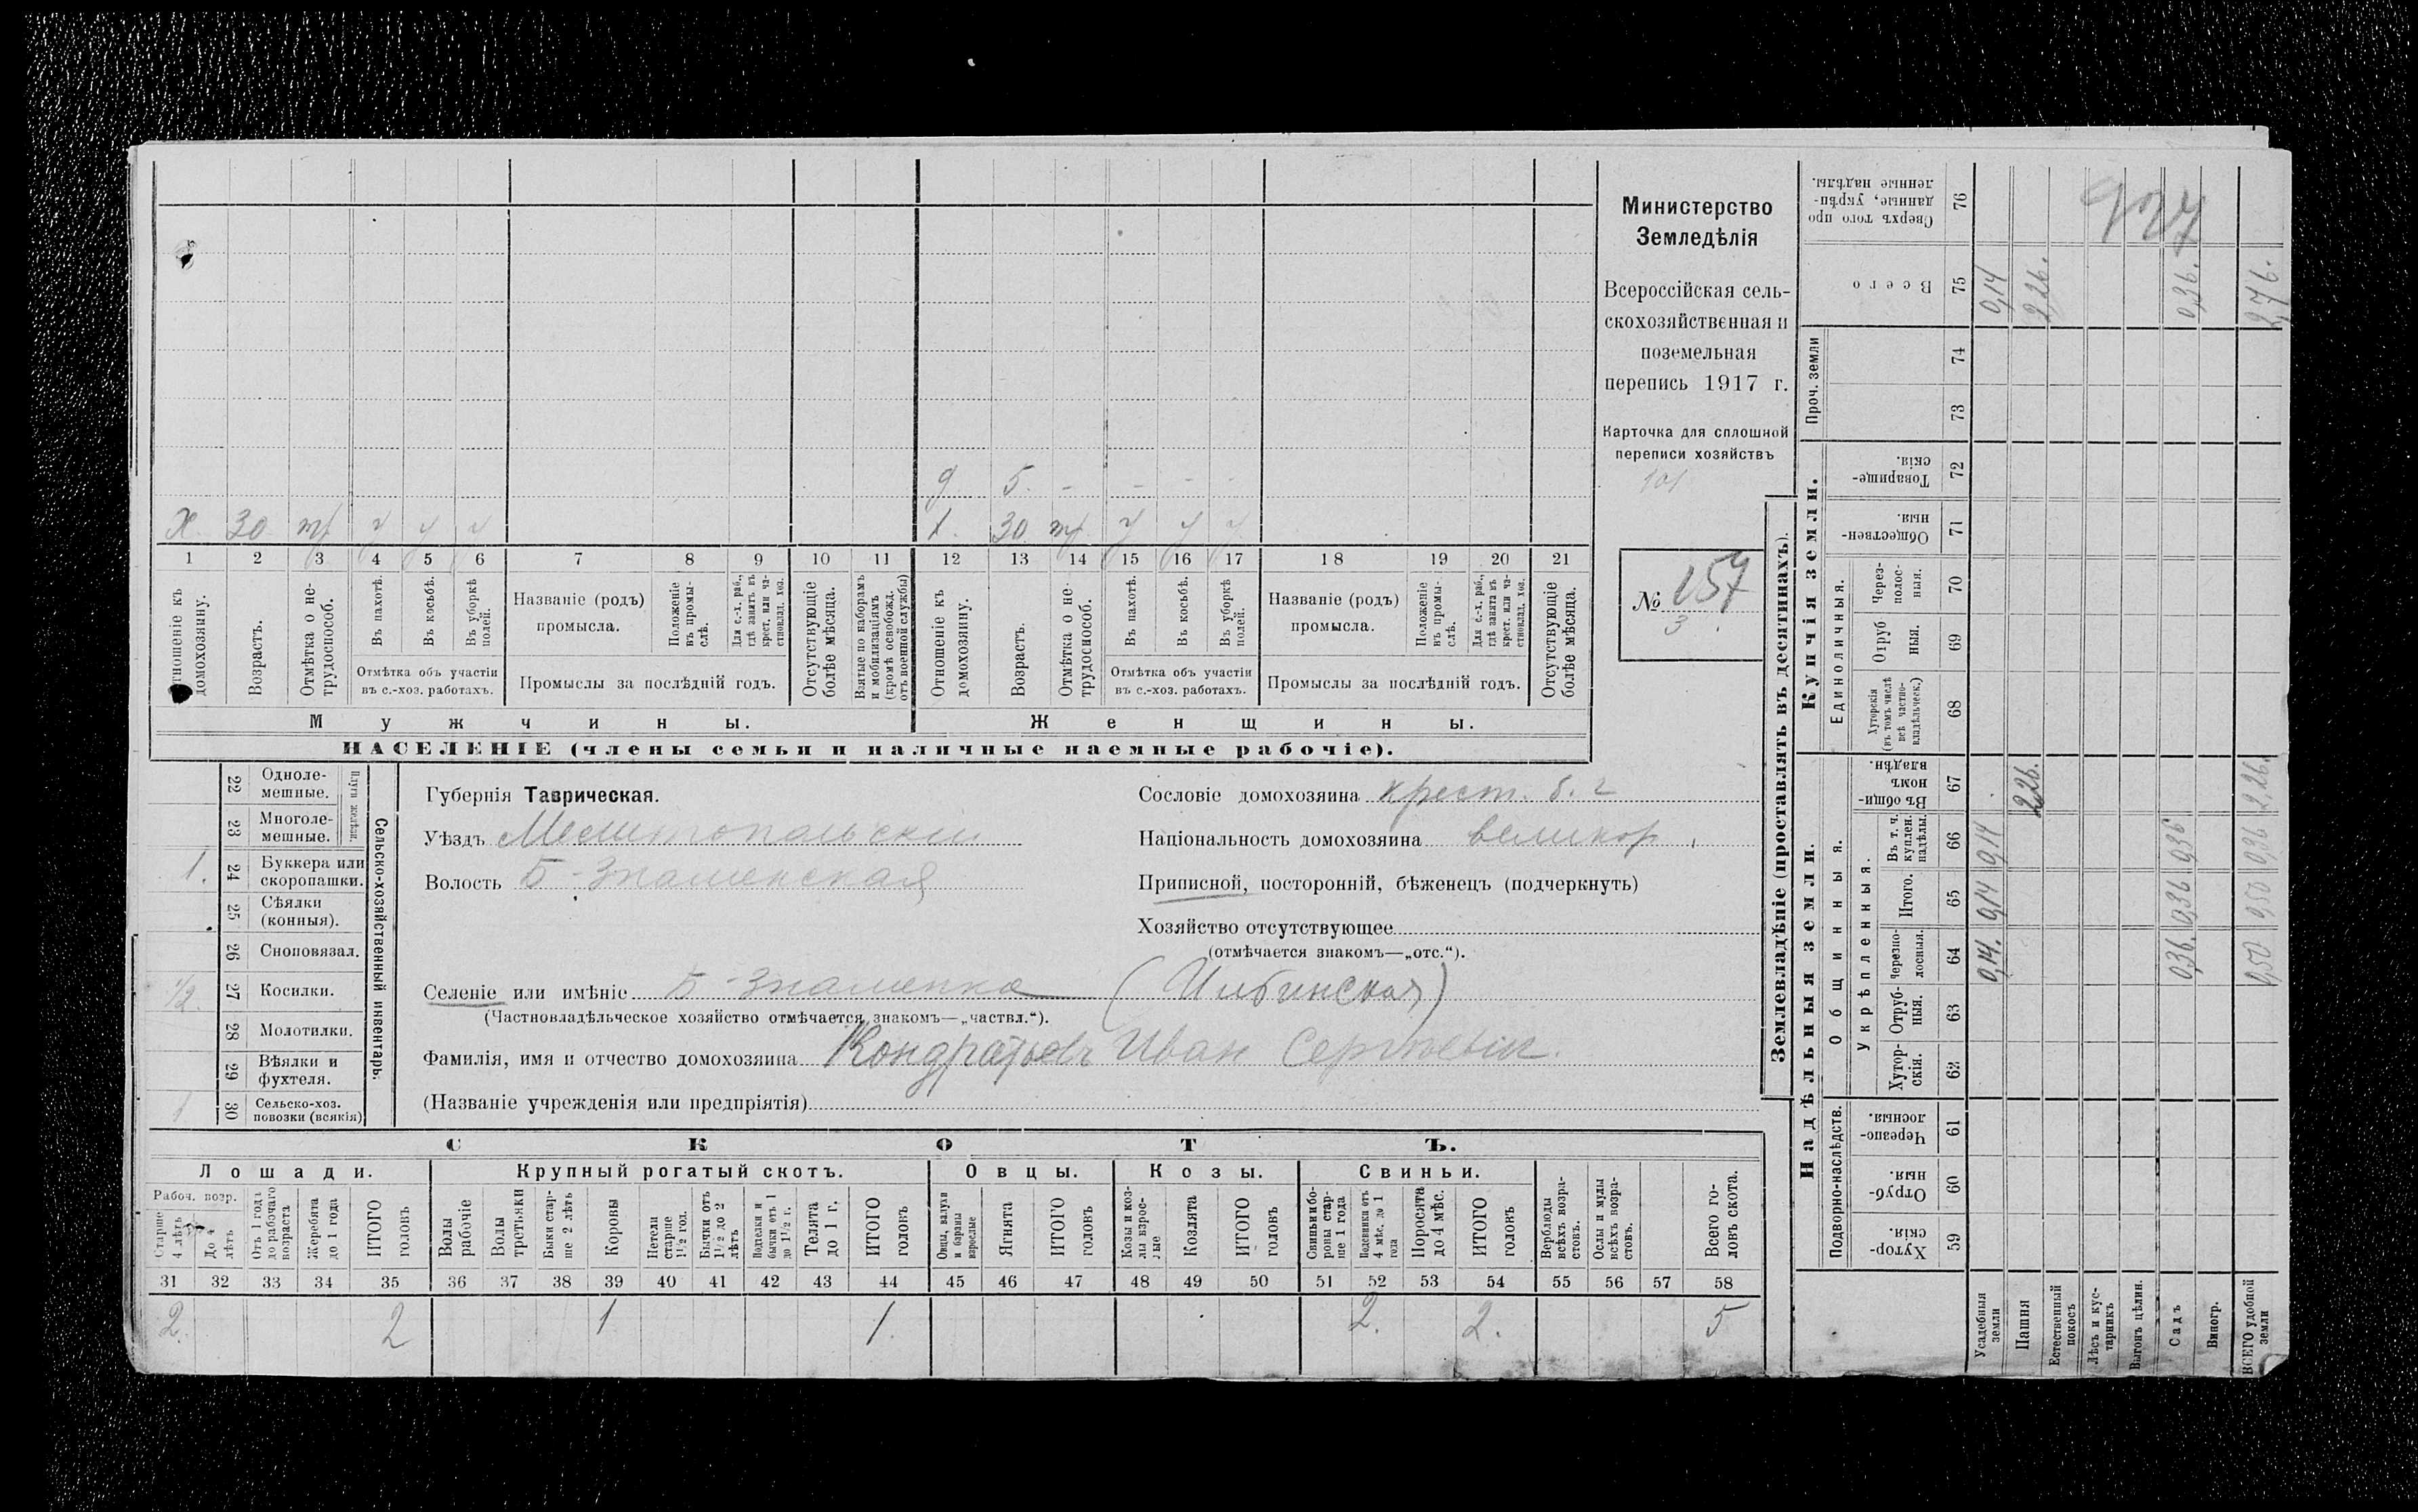 Министерство
Земледѣлія
Всероссійская сель-
скохозяйственная и
поземельная
перепись 1917 г.
Карточка для сплошной
переписи хозяйствъ
101
№ 157
3
д 5. - - - -
х 30 тр ч ч ч
1. 30 тр ч ч ч
1 2 3 4 5 6 7 8 9 10 11 12 13 14 15 16 17 18 19 20 21
Отношеніе къ домохозяину.
Возрастъ.
Отмѣтка о не-трудоспособ.
Въ пахотѣ.
Въ косьбѣ.
Въ уборкѣ полей.
Отмѣтка объ участіи
въ с.-хоз. работахъ.
Названіе (родъ)
промысла.
Положеніе въ промы-слѣ.
Для с.-х. раб., гдѣ занятъ въ крест. или ча-стновлад. хоз.
Промыслы за послѣдній годъ.
Отсутствующіе болѣе мѣсяца.
Взятые по наборамъ и мобилизаціямъ (кромѣ освобожд. отъ военной службы)
Отношеніе къ домохозяину.
Возрастъ.
Отмѣтка о не-трудоспособ.
Въ пахотѣ.
Въ косьбѣ.
Въ уборкѣ полей.
Отмѣтка объ участіи
въ с.-хоз. работахъ.
Названіе (родъ)
промысла.
Положеніе въ промы-слѣ.
Для с.-х. раб., гдѣ занята въ крест. или ча-стновлад. хоз.
Промыслы за послѣдній годъ.
Отсутствующіе болѣе мѣсяца.
Мужчины.
Женщины.
НАСЕЛЕНІЕ (члены семьи и наличные наемные рабочіе).
Сельско-хозяйственный инвентарь.
Плуги желѣзн.
22 Одноле-мешные.
23 Многоле-мешные.
1. 24 Буккера или скоропашки.
25 Сѣялки (конныя).
26 Сноповязал.
1/2 27 Косилки.
28 Молотилки.
29 Вѣялки и фухтеля.
1 30 Сельско-хоз. повозки (всякія)
Губернія Таврическая.
Уѣздъ Мелитопольскій
Волость Б-Знаменская
Сословіе домохозяина крест. б. г
Національность домохозяина великор.
Приписной, посторонній, бѣженецъ (подчеркнуть)
Хозяйство отсутствующее
(отмѣчается знакомъ—„отс.“).
Селеніе или имѣніе Б-Знаменка
(Частновладѣльческое хозяйство отмѣчается знакомъ—„частвл.“).
Фамилія, имя и отчество домохозяина Кондратьевъ Иван Сергѣевич.
(Названіе учрежденія или предпріятія)
СКОТЪ.
Лошади. Крупный рогатый скотъ. Овцы. Козы. Свиньи.
Рабоч. возр.
Старше 4 лѣтъ
До 4 лѣтъ
Отъ 1 года до рабочаго возраста
Жеребята до 1 года
ИТОГО головъ
Волы рабочіе
Волы третьяки
Быки стар-ше 2 лѣтъ
Коровы
Нетели старше 1 1/2 год.
Бычки отъ 1 1/2 до 2 лѣтъ
Подтелки и бычки отъ 1 до 1 1/2 г.
Телята до 1 г.
ИТОГО головъ
Овцы, валухи и бараны взрослые
Ягнята
ИТОГО головъ
Козы и коз-лы взрос-лые
Козлята
ИТОГО головъ
Свиньи и бо-ровы стар-ше 1 года
Подсвинки отъ 4 мѣс. до 1 года
Поросята до 4 мѣс.
ИТОГО головъ
Верблюды всѣхъ возра-стовъ.
Ослы и мулы всѣхъ возра-стовъ.
Всего го-ловъ скота.
31 32 33 34 35 36 37 38 39 40 41 42 43 44 45 46 47 48 49 50 51 52 53 54 55 56 57 58
2. 2 1 1. 2. 2. 5
Землевладѣніе (проставлять въ десятинахъ).
Надѣльныя земли.
Купчія земли.
Проч. земли
Подворно-наслѣдств.
Общинныя.
Укрѣпленныя.
Единоличныя.
59 Хутор-скія.
60 Отруб-ныя.
61 Черезпо-лосныя.
62 Хутор-скія.
63 Отруб-ныя.
64 Черезпо-лосныя.
65 Итого.
66 Въ т. ч. куплен. надѣлы.
67 Въ общин-номъ владѣн.
68 Хуторскія (въ томъ числѣ всѣ частно-владѣльческ.)
69 Отруб ныя.
70 Через-полос-ныя.
71 Обществен-ныя.
72 Товарище-скія.
73
74
75 Всего
76 Сверхъ того про-данные, укрѣп-ленные надѣлы.
Усадебныя земли 0,14. 0,14 0,14 0,14
Пашня 2,26. 2,26.
Естественный покосъ
Лѣсъ и кус-тарникъ
Выгонъ цѣлин.
Садъ 0,36. 0,36 0,36 0,36.
Виногр.
ВСЕГО удобной земли 0,50 0,50 0,36 2,26. 2,76.
927